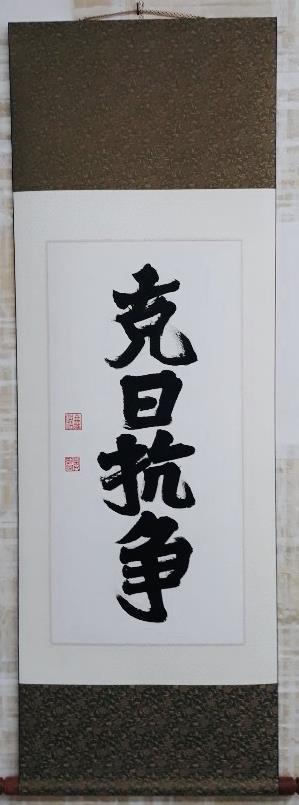 克日抗争